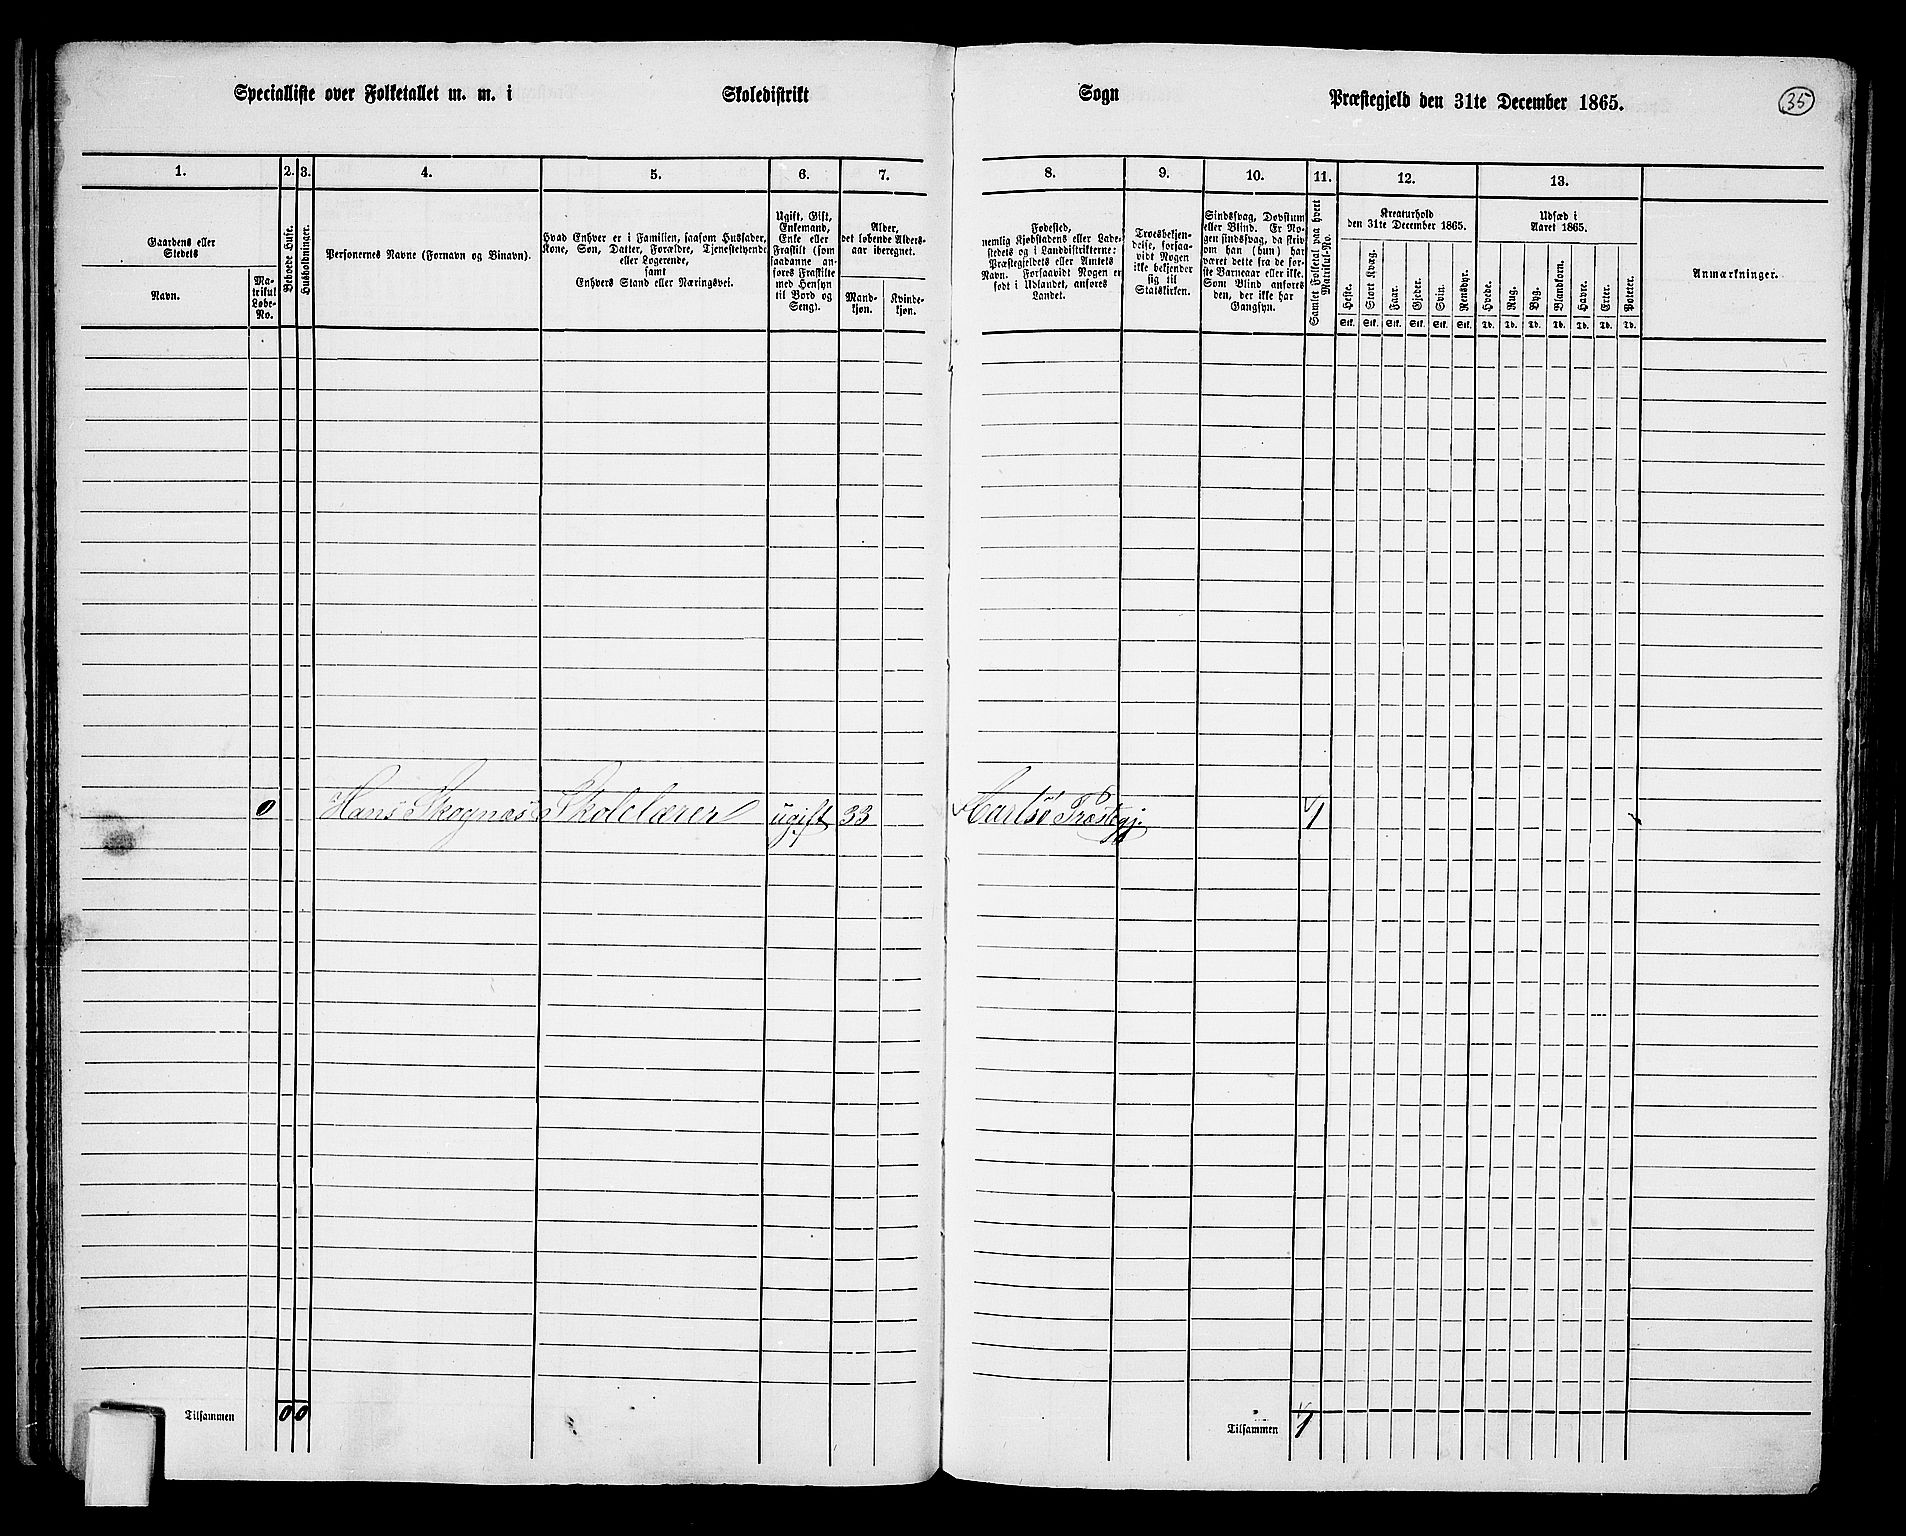 Specialliste over Folketallet m. m. i Skoledistrikt Sogn Præstegjeld den 31te December 1865. 35
1. 2. 3. 4. 5. 6. 7. 8. 9. 10. 11. 12. 13.
Gaardens eller
Stedets
Navn.
Ma-
trikul
Løbe-
No.
Beboede Huse.
Husholdninger.
Personernes Navne (Fornavn og Binavn).
Hvad Enhver er i Familien, saasom Husfader,
Kone, Søn, Datter, Forældre, Tjenestetyende
eller Logerende,
samt
Enhvers Stand eller Næringsvei.
Ugift, Gift,
Enkemand,
Enke eller
Fraskilt (som
saadanne an-
føres Fraskilte
med Hensyn
til Bord og
Seng).
Alder,
det løbende Alders-
aar iberegnet.
Mand-
kjøn.
Kvinde-
kjøn.
Fødested,
nemlig Kjøbstadens eller Lade-
stedets og i Landdistrikterne:
Præstegjeldets eller Amtets
Navn. Forsaavidt Nogen er
født i Udlandet, anføres
Landet.
Troesbekjen-
delse, forsaa-
vidt Nogen
ikke bekjender
sig til
Statskirken.
Sindssvag, Døvstum
eller Blind. Er No-
gen sindssvag, da skriv
om han (hun) har
været dette fra de før-
ste Barneaar eller ikke.
Som Blind anføres
den, der ikke har
Gangsyn.
Samlet Folketal paa hvert
Matrikul-No.
Kreaturhold
den 31te December 1865.
Heste.
Stort Kvæg.
Faar.
Gjeder.
Svin.
Rensdyr.
Stk. Stk. Stk. Stk. Stk. Stk.
Udsæd i
Aaret 1865.
Hvede.
Rug.
Byg.
Blandkorn.
Havre.
Erter.
Poteter.
Td. Td. Td. Td. Td. Td. Td.
Anmærkninger.
0 Hans Skognæs Skolelærer ugift 33 Carlsø Præstegj. 1
Tilsammen 0 0 Tilsammen 1